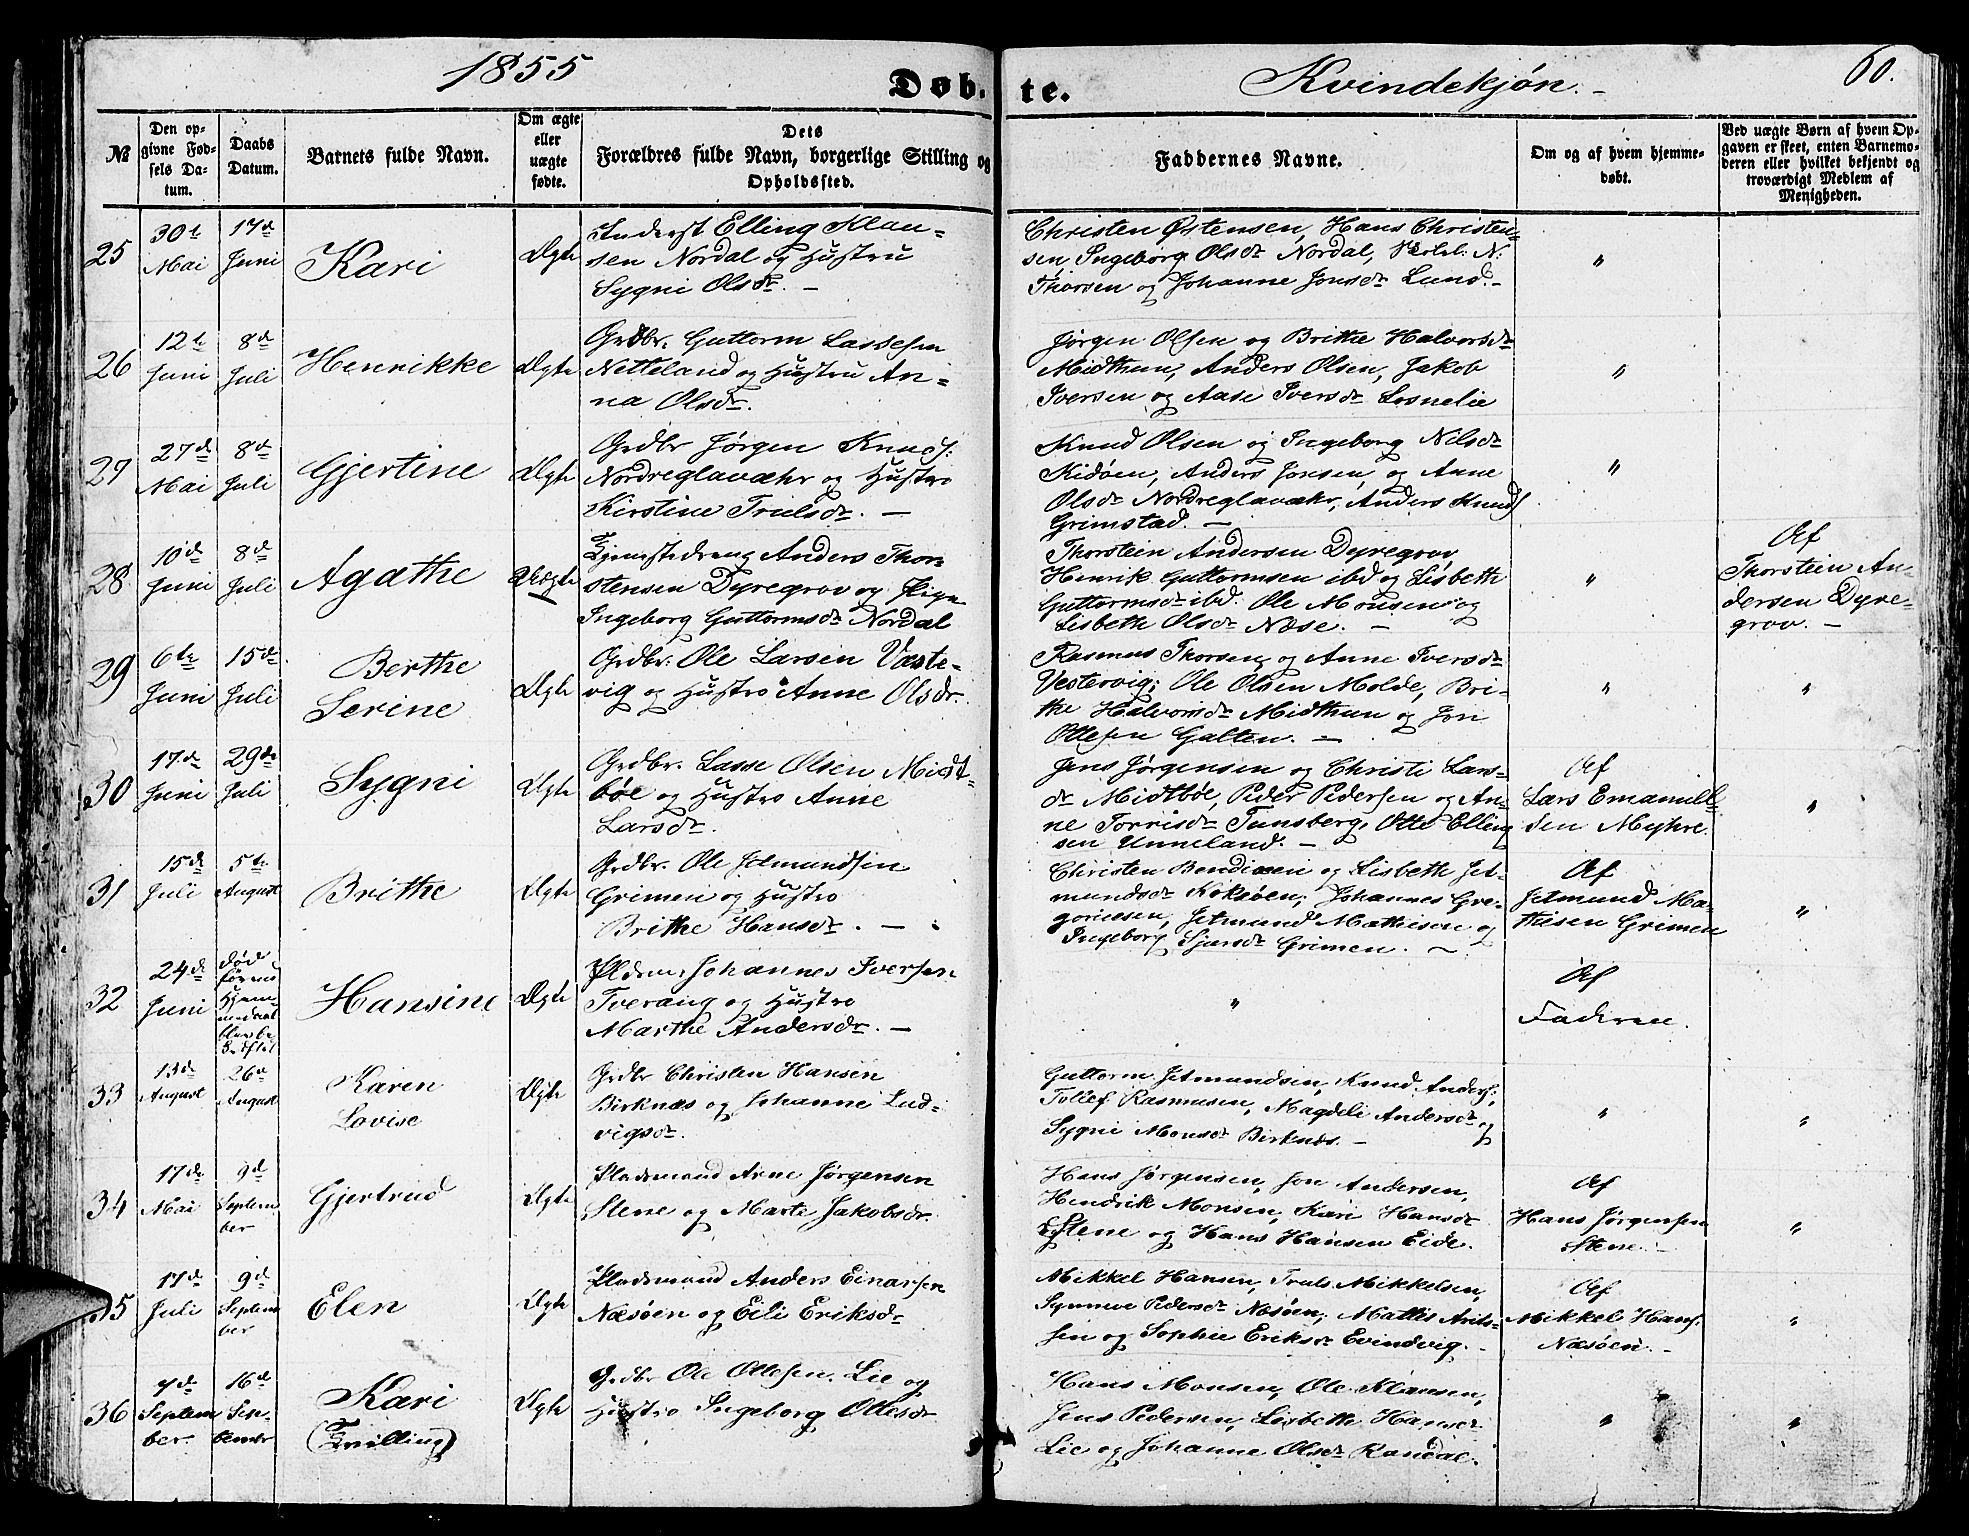 1855
Døb-
te.
Kvindekjøn.
60.
№
Den op-
givne Fød-
sels Da-
tum.
Daabs
Datum.
Barnets fulde Navn.
Om ægte
eller
uægte
fødte.
Dets
Forældres fulde Navn, borgerlige Stilling og
Opholdssted.
Faddernes Navne.
Om og af hvem hjemme-
døbt.
Ved uægte Børn af hvem Op-
gaven er skeet, enten Barnemo-
deren eller hvilket bekjendt og
troværdigt Medlem af
Menigheden.
25
30te
Mai
17de
Juni
Kari
Ægte
Inderst Elling Klau-
sen Nordal og Hustru
Sygni Olsdr. —
Christen Østensen, Hans Christen-
sen Ingeborg Olsdr Nordal, N:
Thorsen og Johanne Jonsdr Lund. -
"
26
12te
Juni
8de
Juli
Henrikke
Ægte
Grdbr. Guttorm Lassesen
Netteland og Hustru An-
na Olsdr.
Jørgen Olsen og Brithe Halvorsdr
Midthun, Anders Olsen, Jakob
Iversen og Aase Iversdr Losnelie
"
27
27de
Mai
8de
Juli
Gjertine
Ægte
Grdbr Jørgen Knuds:
Nordreglavæhr og Hustro
Kirstine Trulsdr. —
Knud Olsen og Ingeborg Nilsdr
Kidøen, Anders Jonsen, og Anne
Olsdr Nordreglavæhr, Anders Knuds
Grimstad. —
"
28
10de
Juni
8de
Juli
Agathe
Uægte
Tjenestedreng Anders Thor-
stensen Dyregrov og Pige
Ingeborg Guttormsdr Nordal
Thorstein Andersen Dyregrov
Henrik Guttormsen ibd og Lisbeth
Guttormsdr ibd. Ole Monsen og
Lisbeth Olsdr Næse. —
"
Af
Thorstein An-
dersen Dyre-
grov. —
29
6te
Juni
15de
Juli
Berthe
Serine
Ægte
Grdbr. Ole Larsen Væste-
vig og Hustro Anne Olsdr.
Rasmus Thorsen, og Anne Iversdr
Vestervig; Ole Olsen Molde, Bri-
the Halvorsdr Midthun og Jon
Ottesen Galten. —
"
"
30
17de
Juni
29de
Juli
Sygni
Ægte
Grdbr. Lasse Olsen Midt-
bøe og Hustro Anne
Larsdr.
Jens Jørgensen og Christi Lars-
dr Midtbøe, Peder Pedersen og An-
ne Torrisdr Tunsberg, Otte Elling
sen Unneland. —
Af
Lars Emanuel-
sen Myhre.
"
31
15de
Juli
5te
August
Brithe
Ægte
Grdbr. Ole Jetmundsen
Grimen og Hustro
Brithe Hansdr. —
Christen Bendixen og Lisbeth Jet-
mundsdr Koksøen, Johannes Gre-
goriesen, Jetmund Mathisen og
Ingeborg Sjursdr Grimen. —
Af
Jetmund Ma-
thisen Grimen
"
32
24de
Juni
død
før
Hjem-
Hansine
Ægte
Pladsm. Johannes Iversen
Tverang og Hustro
Marthe Andersdr. —
"
Af
Faderen.
33
13de
August
26de
August
Karen
Lovise
Ægte
Grdbr Christen Hansen
Birknæs og Johanne Lud-
vigsdr.
Guttorm Jetmundsen, Knud Anders:,
Tollef Rasmusen, Magdeli Andersdr og
Sygni Monsdr Birknæs. —
"
"
34
17de
Mai
9de
Septem
ber
Gjertrud
Ægte
Pladsmand Arne Jørgensen
Stene og Marte Jakobsdr.
Hans Jørgensen, Jon Andersen,
Hendrik Monsen, Kari Hansdr
Stene og Hans Hansen Eide.
Af
Hans Jørgensen
Stene. —
"
35
17de
Juli
9de
Septem
ber
Elen
Ægte
Pladsmand Anders Einarsen
Næsøen og Eili Eriksdr
Mikkel Hansen, Truls Mikkelsen,
Synneve Pedersdr Næsøen, Mattis Arits-
sen og Sophie Eriksdr Evindvig. -
Af
Mikkel Hans:
Næsøen. -
"
36
7de
Septem
ber.
16de
Sep-
tember
Kari
(Tvilling)
Ægte
Grdbr Ole Ottesen. Lie og
Hustro Ingeborg Ottesdr
Hans Monsen, Ole Klausen,
Jens Pedersen, Lisbeth Hansdr
Lie og Johanne Olsdr Randal.
"
"